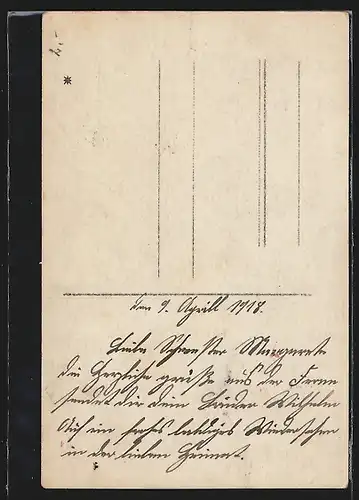 2,-
den 9. Aprill 1918.
Liebe Schwester Margarete
die Herzliche grüße aus der Ferne
sendet dir dein Bruder Wilhelm
Auf ein frohes baldiges Wiedersehen
in der lieben Heimat.